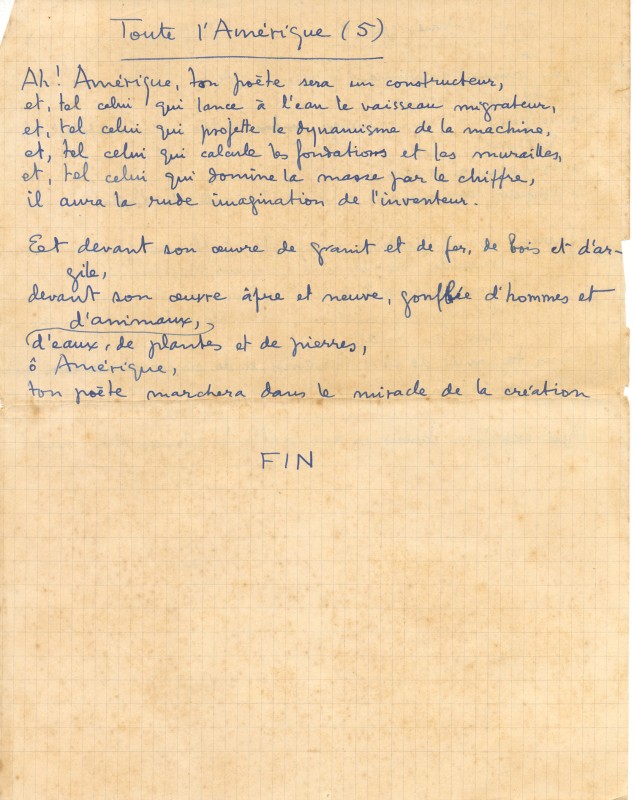 Toute l'Amérique (5)
Ah! Amérique, ton poète sera un constructeur,
et, tel celui qui lance à l'eau le vaisseau migrateur,
et, tel celui qui projette le dynamisme de la machine,
et, tel celui qui calcule les fondations et les murailles,
et, tel celui qui domine la masse par le chiffre,
il aura la rude imagination de l'inventeur.
Eet devant son œuvre de granit et de fer, de bois et d'ar-
gile,
devant son œuvre âpre et neuve, gonflée d'hommes et
d'animaux,
d'eaux, de plantes et de pierres,
ô Amérique,
ton poète marchera dans le miracle de la création
FIN